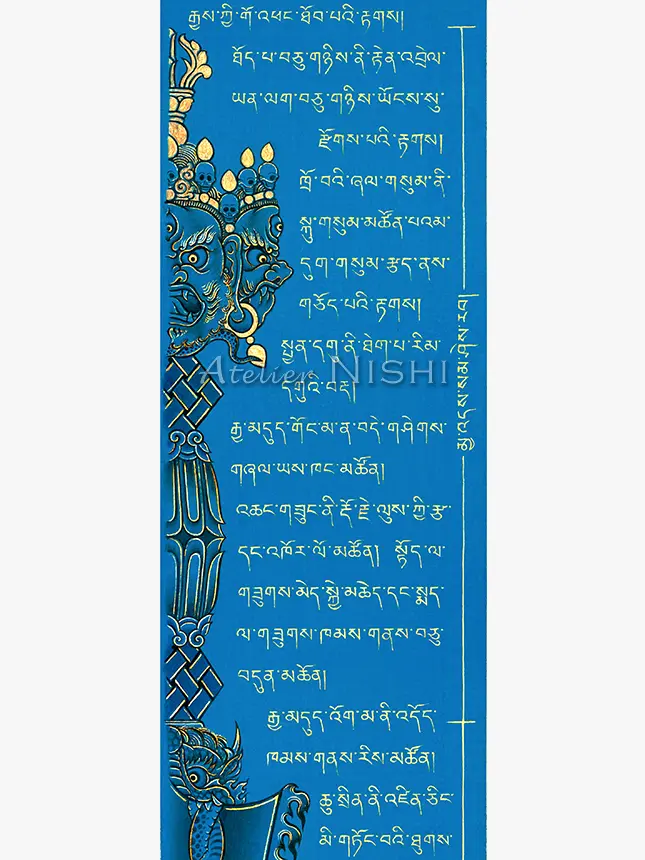 རྒྱས་ཀྱི་གོ་འཕང་ཐོབ་པའི་རྟགས།
ཐོད་པ་བཅུ་གཉིས་ནི་རྟེན་འབྲེལ་
ཡན་ལག་བཅུ་གཉིས་ཡོངས་སུ་
རྫོགས་པའི་རྟགས།
ཁྲོ་བའི་ཞལ་གསུམ་ནི་
སྐུ་གསུམ་མཚོན་པའམ་
དུག་གསུམ་རྩད་ནས་
གཅོད་པའི་རྟགས།
སྤྱན་དགུ་ནི་ཐེག་པ་རིམ་
དགུའི་བརྡ།
Atelier NISHI
རྒྱ་མདུད་གོང་མ་ན་བདེ་གཤེགས་
གཞལ་ཡས་ཁང་མཚོན།
འཆང་གཟུང་ནི་རྡོ་རྗེ་ལུས་ཀྱི་རྩ་
དང་འཁོར་ལོ་མཚོན། སྟོད་ལ་
གཟུགས་མེད་སྐྱེ་མཆེད་དང་སྨད་
ལ་གཟུགས་ཁམས་གནས་བཅུ་
བདུན་མཚོན།
རྒྱ་མདུད་འོག་མ་ནི་འདོད་
ཁམས་གནས་རིས་མཚོན།
ཆུ་སྲིན་ནི་འཛིན་ཅིང་
མི་གཏོང་བའི་ཐུགས་